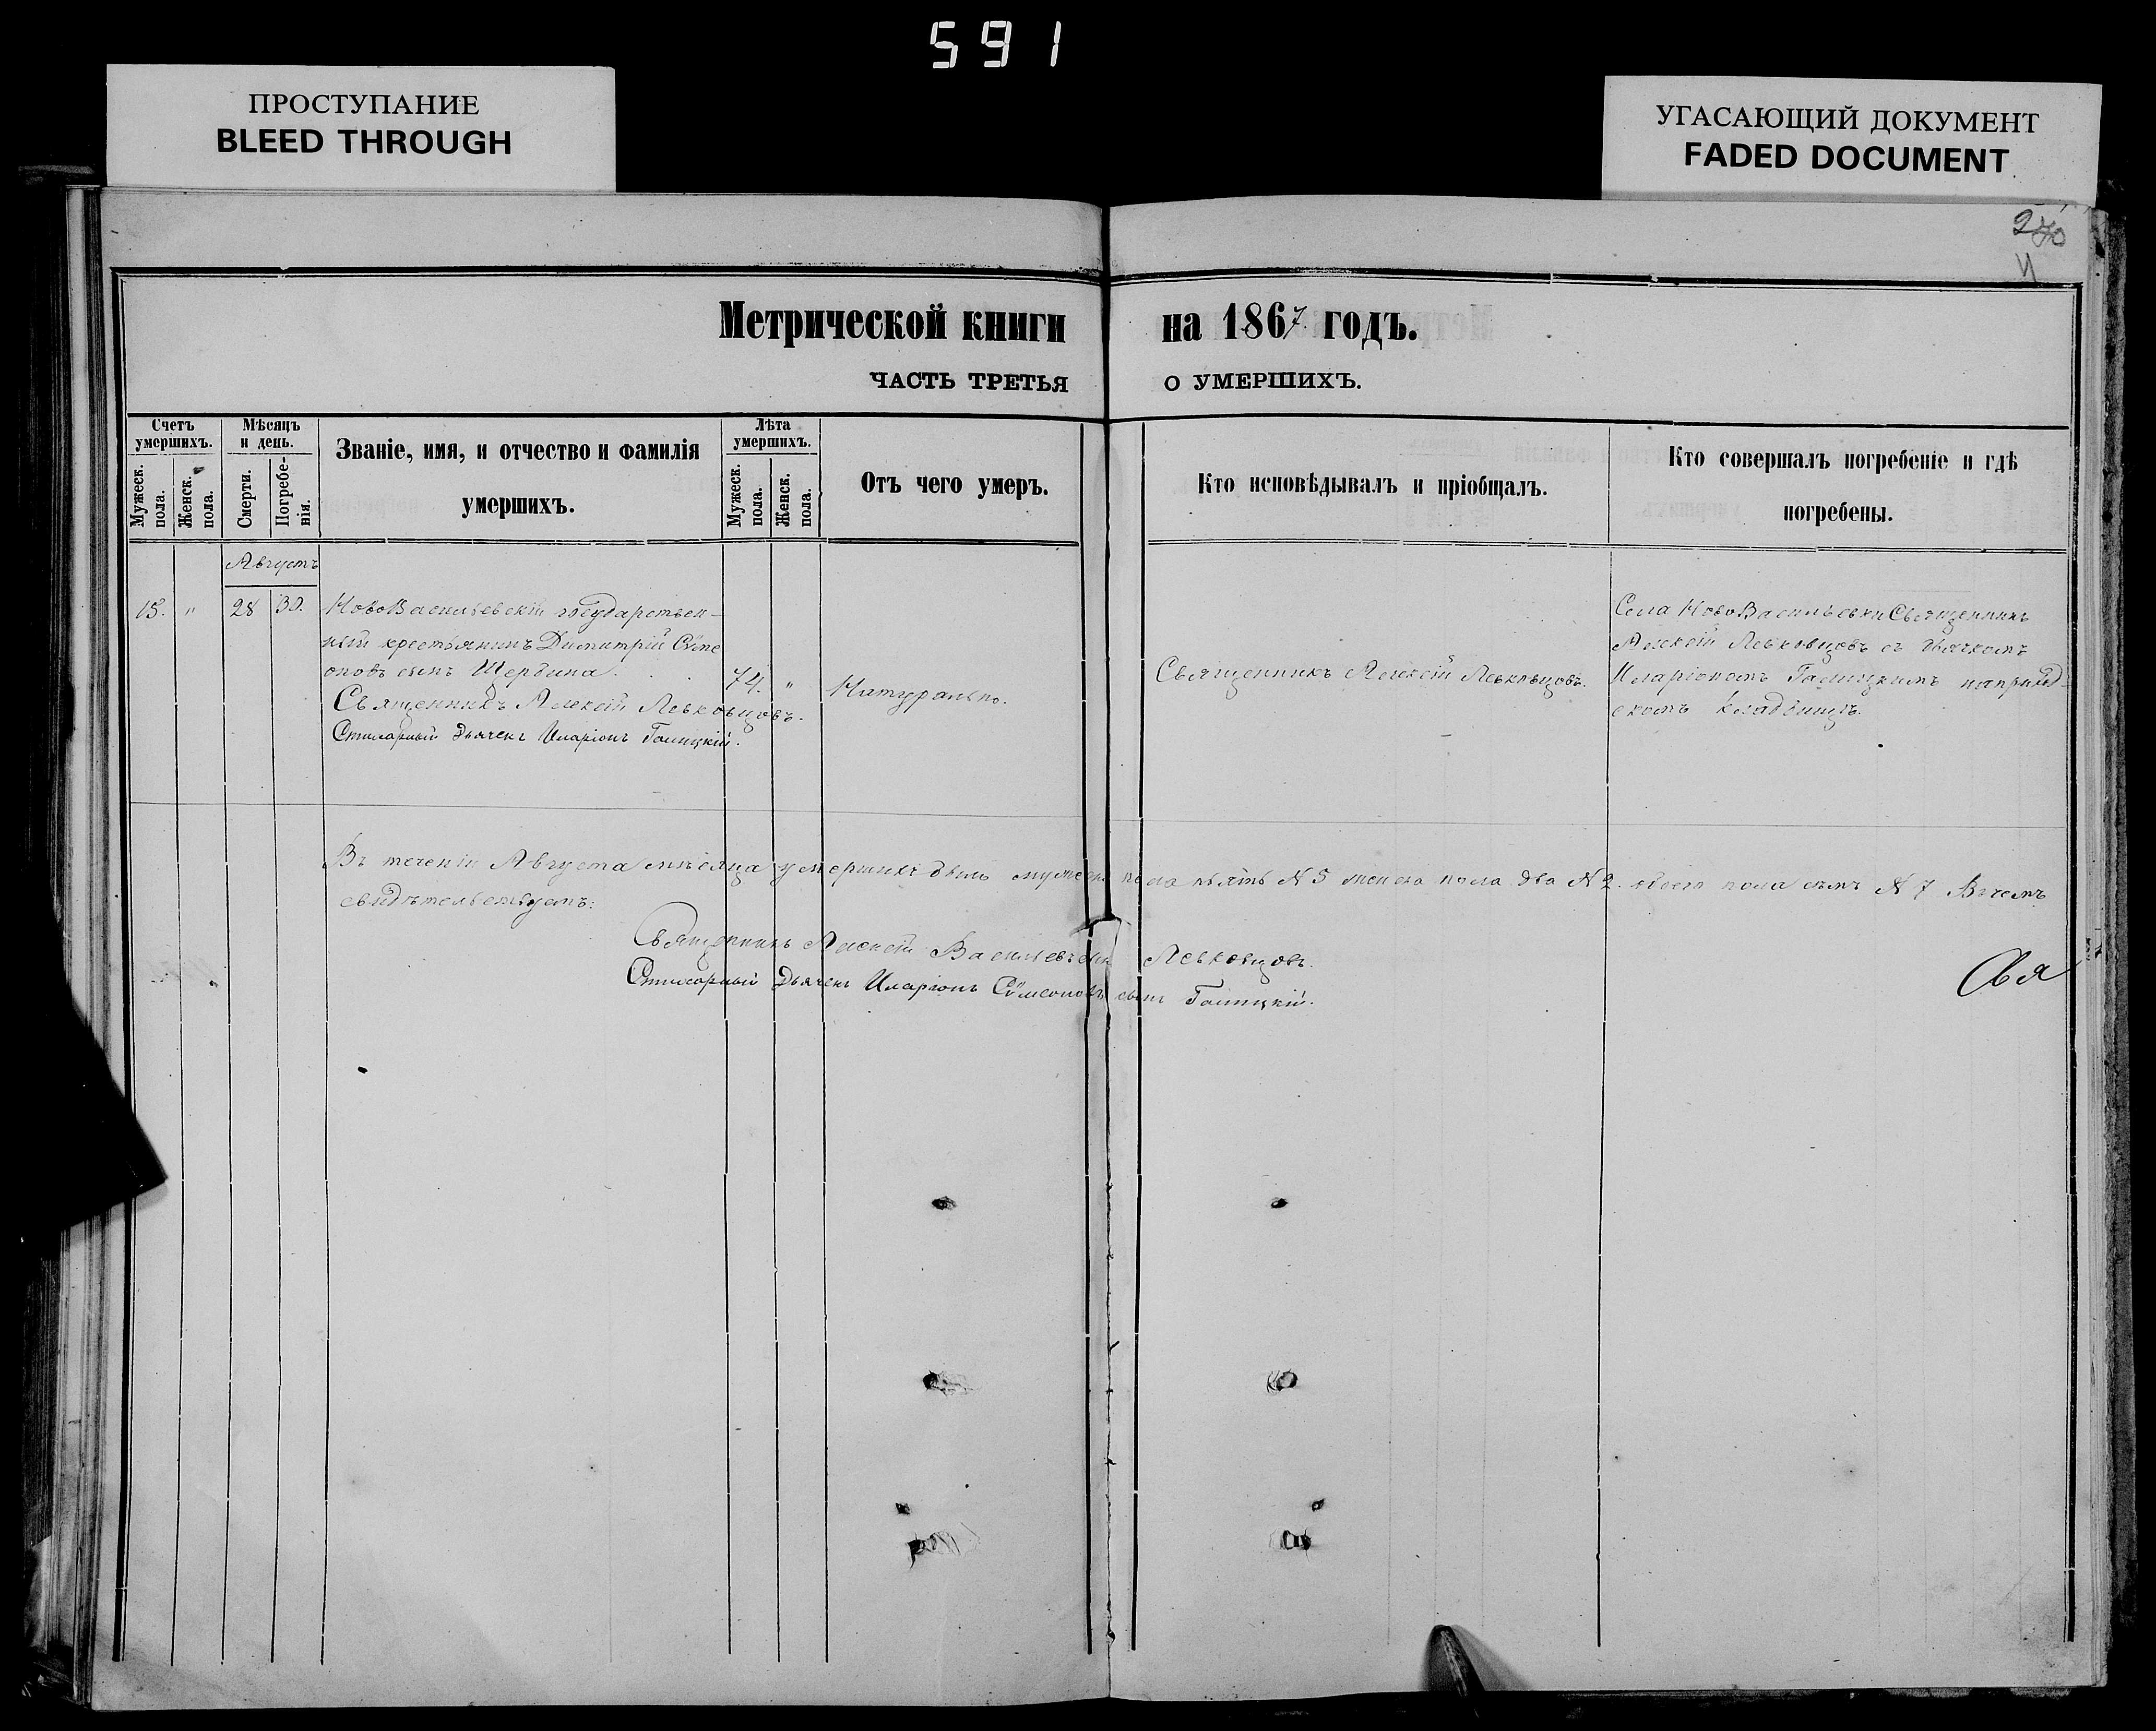 591
ПРОСТУПАНИЕ
BLEED THROUGH
УГАСАЮЩИЙ ДОКУМЕНТ
FADED DOCUMENT
Метрической книги на 1867 годъ.
ЧАСТЬ ТРЕТЬЯ О УМЕРШИХЪ.
Счетъ умершихъ.
Мужеск. пола.
Женск. пола.
Мѣсяцъ и день.
Смерти.
Погребе-
нія.
Званіе, имя, и отчество и фамилія
умершихъ.
Лѣта умершихъ.
Мужеск. пола.
Женск. пола.
Отъ чего умеръ.
Кто исповѣдывалъ и пріобщалъ.
Кто совершалъ погребеніе и гдѣ
погребены.
Августъ
15. " 28 30.
НовоВасильевскій государствен-
ный крестьянинъ Димитрій Сѵме
оновъ сынъ Щербина.
Священникъ Алексій Левковцовъ.
Стихарный Дьячекъ Иларіонъ Галицкій.
74. "
Натурально.
Священникъ Алексій Левковцовъ.
Села НовоВасильевки Священникъ
Алексій Левковцовъ съ дьячкомъ
Иларіономъ Галицкимъ на приход-
скомъ кладбищѣ.
Въ теченіи Августа мѣсяца умершихъ было мужеска пола пять N 5 женска пола два N 2. обоего пола семь N 7 Въ чемъ
свидѣтельствуемъ:
Священникъ Алексій Васильевъ сынъ Левковцовъ.
Стихарный Дьячекъ Иларіонъ Сѵмеоновъ сынъ Галицкій.
Свя